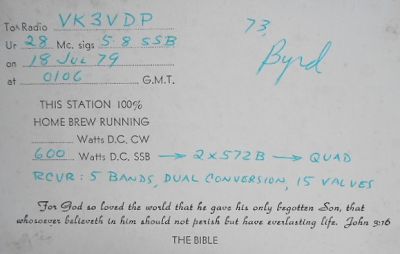 To Radio VK3VDP
73,
Ur 28 Mc. sigs 5-8 SSB
Byrd
on 18 JUL 79
at 0106 G.M.T.
THIS STATION 100%
HOME BREW RUNNING
Watts D.C. CW
600 Watts D.C. SSB → 2x572B → QUAD
RCVR: 5 BANDS, DUAL CONVERSION, 15 VALVES
For God so loved the world that he gave his only begotten Son, that
whosoever believeth in him should not perish but have everlasting life. John 3:16
THE BIBLE